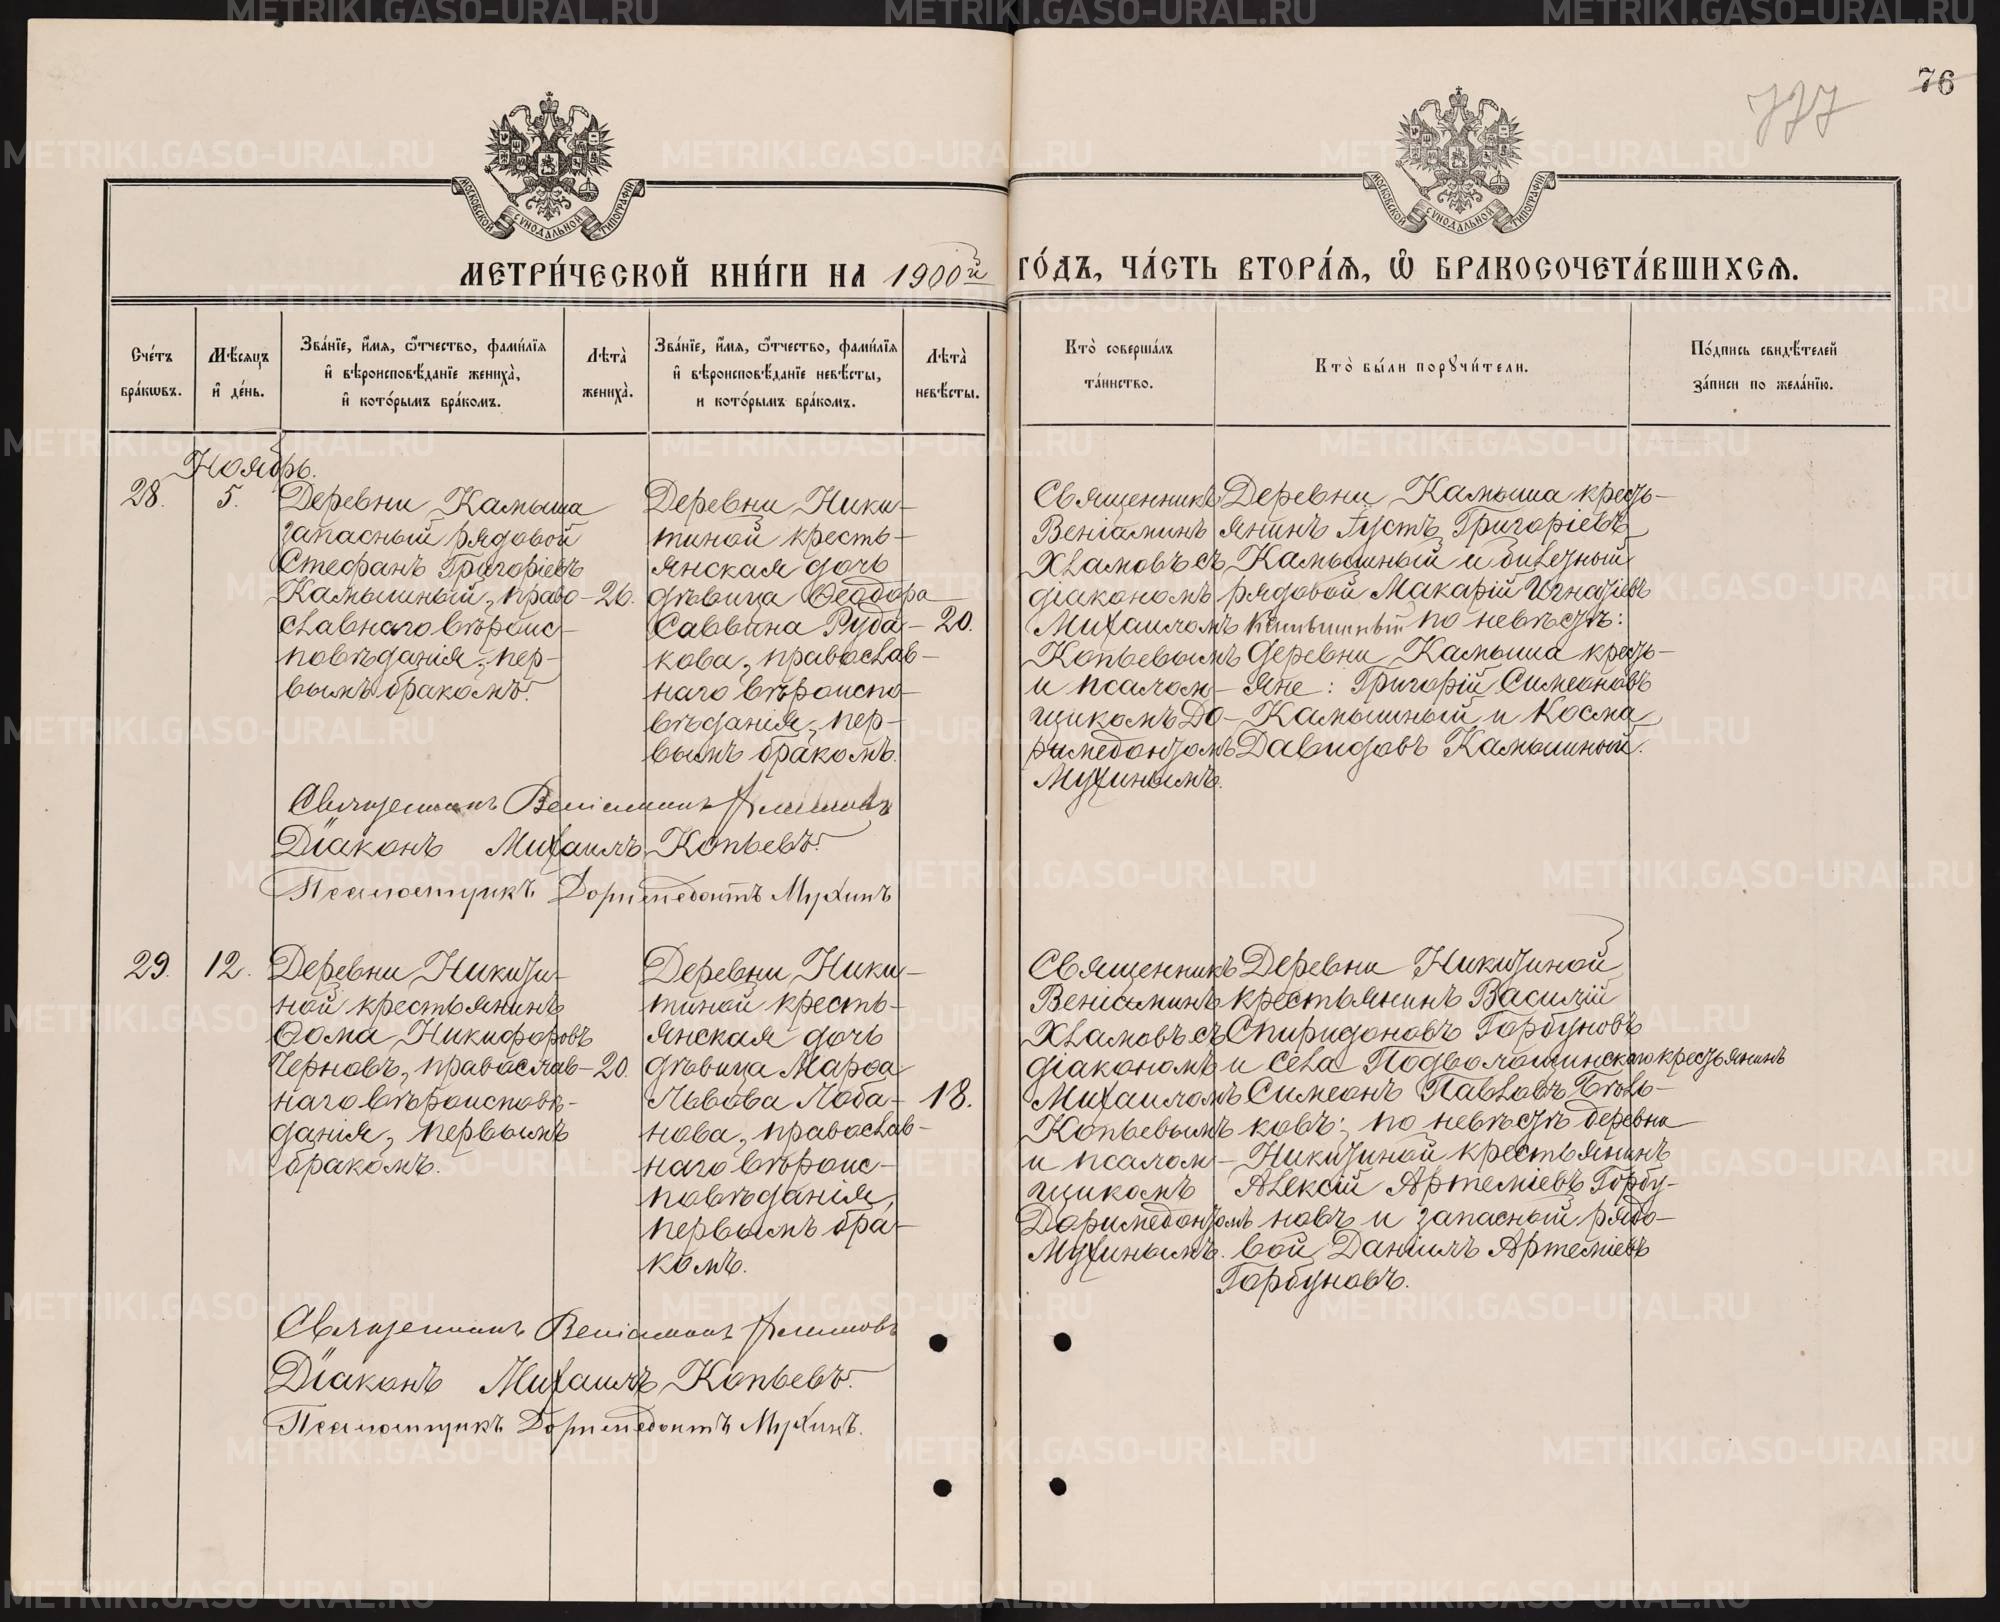 76
777
МОСКОВСКОЙ СѴНОДАЛЬНОЙ ТИПОГРАФІИ
МОСКОВСКОЙ СѴНОДАЛЬНОЙ ТИПОГРАФІИ
МЕТРИ́ЧЕСКОЙ КНИ́ГИ НА 1900й ГО́ДЪ, ЧА́СТЬ ВТОРА́Ѧ, Ѡ҆ БРАКОСОЧЕТА́ВШИХСѦ.
Сче́тъ бра́кѡвъ.
Мѣ́сѧцъ и҆ де́нь.
Зва́нїе, и҆́мѧ, ѻ҆́тчество, фами́лїѧ
и҆ вѣроисповѣ́данїе жениха̀,
и҆ кото́рымъ бра́комъ.
Лѣта̀ жениха̀.
Зва́нїе, и҆́мѧ, ѻ҆́тчество, фами́лїѧ
и҆ вѣроисповѣ́данїе невѣ́сты,
и кото́рымъ бра́комъ.
Лѣта̀ невѣ́сты.
Кто̀ соверша́лъ
та́инство.
Кто̀ бы́ли порꙋчи́тели.
По́дпись свидѣ́телей
за́писи по жела́нїю.
Ноябрь.
28.
5.
Деревни Камыша
запасный рядовой
Стефанъ Григоріевъ
Камышный, право-
славнаго вѣроис-
повѣданія, пер-
вымъ бракомъ.
26.
Деревни Ники-
тиной кресть-
янская дочь
дѣвица Ѳеодора
Саввина Руда-
кова, православ-
наго вѣроиспо-
вѣданія, пер-
вымъ бракомъ.
20.
Священникъ
Веніаминъ
Хламовъ съ
діакономъ
Михаиломъ
Копьевымъ
и псалом-
щикомъ До-
римедонтомъ
Мухинымъ.
Деревни Камыша кресть-
янинъ Густъ Григоріевъ
Камышный и билетный
рядовой Макарій Игнатіевъ
Камышный по невѣстѣ:
деревни Камыша кресть-
яне: Григорій Симеоновъ
Камышный и Косма
Давидовъ Камышный.
Священникъ Веніаминъ Хламовъ
Діаконъ Михаилъ Копьевъ.
Псаломщикъ Доримедонтъ Мухинъ
29.
12.
Деревни Никити-
ной крестьянинъ
Ѳома Никифоровъ
Черновъ, православ-
наго вѣроисповѣ-
данія, первымъ
бракомъ.
20.
Деревни Ники-
тиной кресть-
янская дочь
дѣвица Марѳа
Львова Лоба-
нова, православ-
наго вѣроис-
повѣданія,
первымъ бра-
комъ.
18.
Священникъ
Веніаминъ
Хламовъ съ
діакономъ
Михаиломъ
Копьевымъ
и псалом-
щикомъ
Доримедонтомъ
Мухинымъ.
Деревни Никитиной
крестьянинъ Василій
Спиридоновъ Горбуновъ
и села Подволошинскаго крестьянинъ
Симеонъ Павловъ Бѣль-
ковъ; по невѣстѣ деревни
Никитиной крестьянинъ
Алексій Артеміевъ Горбу-
новъ и запасный рядо-
вой Даніилъ Артеміевъ
Горбуновъ.
Священникъ Веніаминъ Хламовъ
Діаконъ Михаилъ Копьевъ.
Псаломщикъ Доримедонтъ Мухинъ.
METRIKI.GASO-URAL.RU